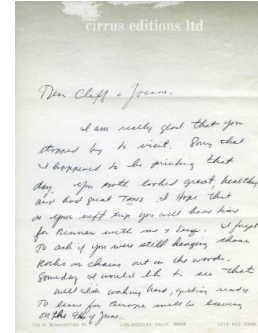 cirrus editions ltd
Dear Cliff & Joanne,
I am really glad that you
stopped by to visit. Sorry that
I happened to be printing that
day. You both looked great, healthy
and had great Tans. I Hope that
on your next trip you will have time
for dinner with me &
to ask if you were still hanging those
Rocks on chains out in the woods.
Someday I would like to see that
Well I am working hard, getting ready
to leave for Europe will be leaving
on the of June.